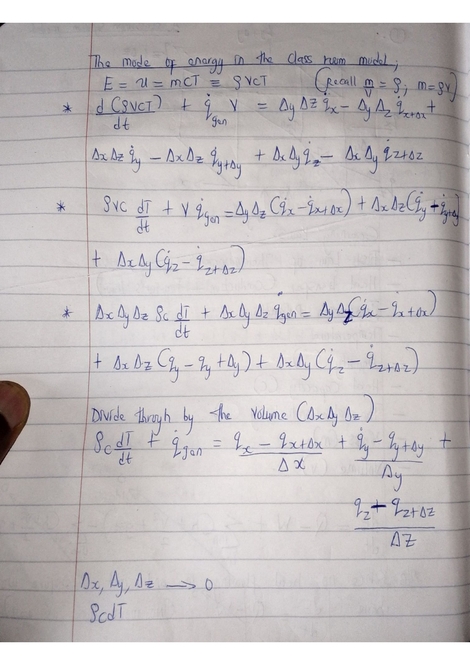 The mode of energy in the class room model,
E = U = mCT = ρVCT (Recall m/V = ρ, m = ρV)
* d(ρVCT)/dt + q̇gen V = Δy Δz q̇x − Δy Δz q̇x+Δx +
Δx Δz q̇y − Δx Δz q̇y+Δy + Δx Δy q̇z − Δx Δy q̇z+Δz
* ρVC dT/dt + V q̇gen = Δy Δz (q̇x − q̇x+Δx) + Δx Δz (q̇y + q̇y+Δy)
+ Δx Δy (q̇z − q̇z+Δz)
* Δx Δy Δz ρc dT/dt + Δx Δy Δz q̇gen = Δy Δz (q̇x − q̇x+Δx)
+ Δx Δz (q̇y − q̇y + Δy) + Δx Δy (q̇z − q̇z+Δz)
Divide throygh by the volume (Δx Δy Δz)
ρc dT/dt + q̇gen = qx − qx+Δx / Δx + q̇y − q̇y+Δy / Δy +
qz + qz+Δz / Δz
Δx, Δy, Δz → 0
ρcdT